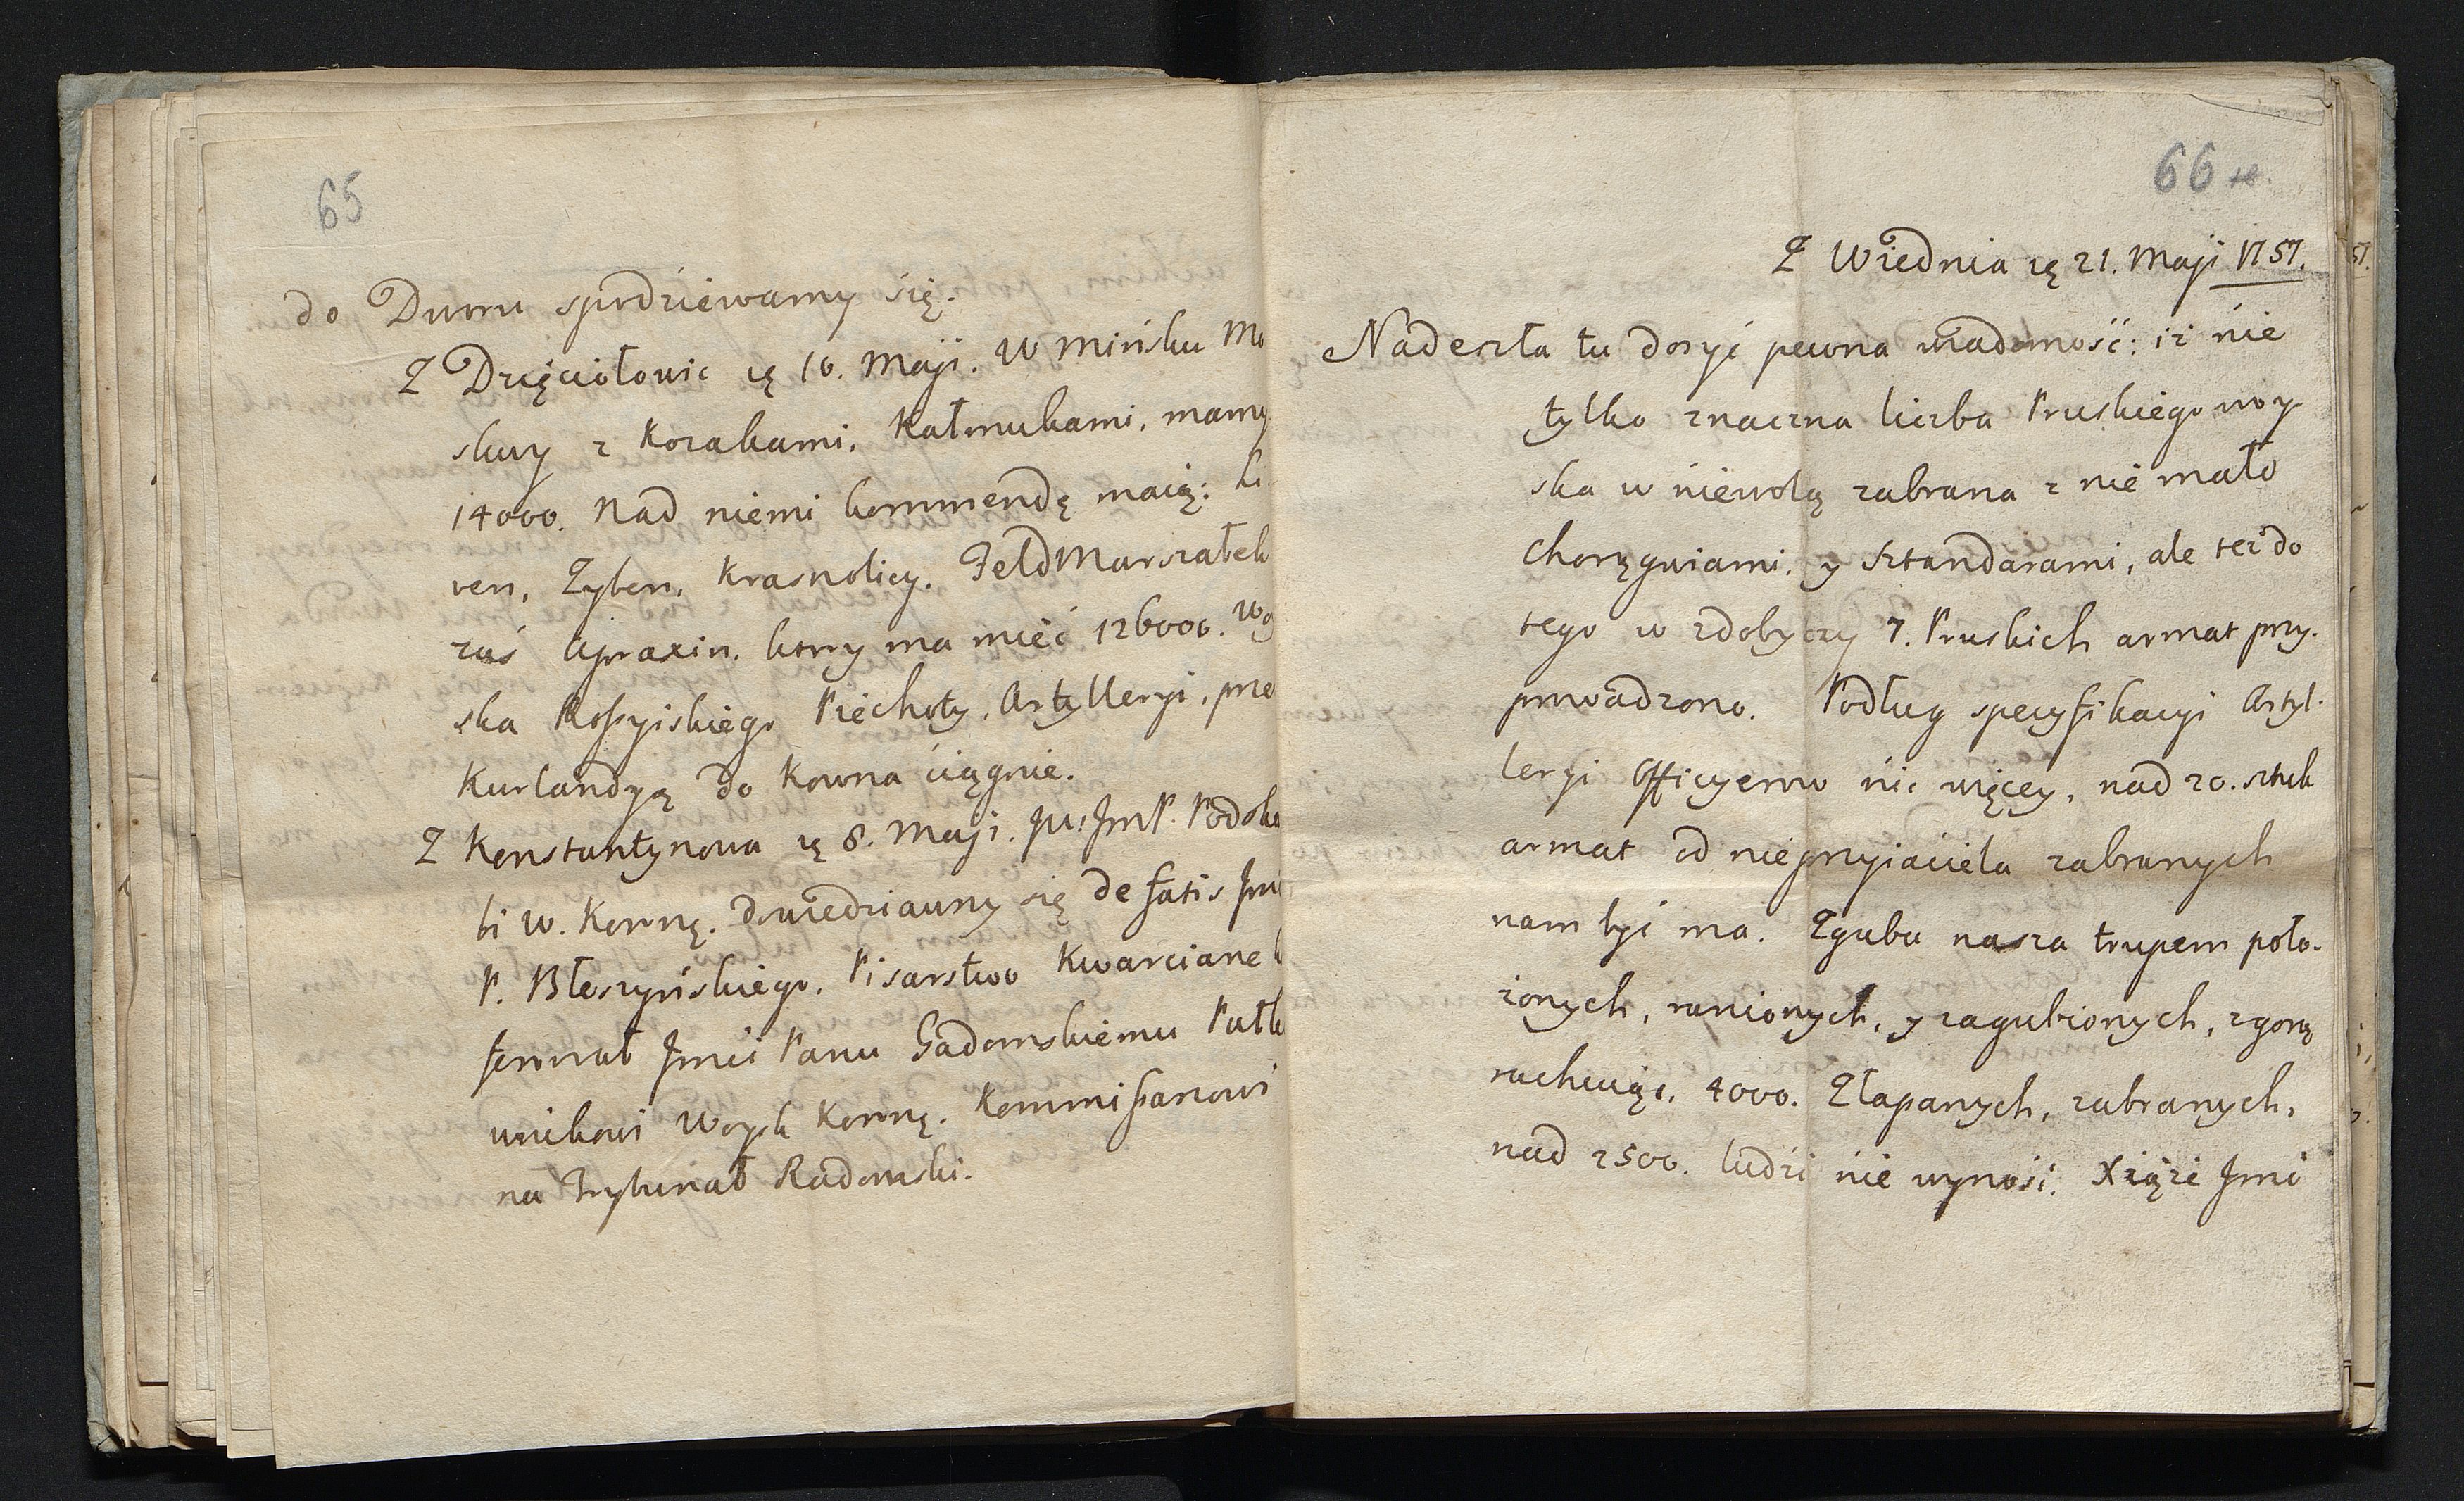 65
do Dworu spodziewamy się.
Z Dzięciołowic ię 16. Maji. W Mińsku Mo
skwy z Kozakami, Kałmukami, mamy
14000. Nad niemi kommendę maią: Li
ven, Zyben, Krasnolicy. FeldMarszałek
zaś Apraxin. ktory ma mieć 126000. Woy
ska Rossyiskiego Piechoty, Artylleryi, prze
Kurlandyą do Kowna ciągnie.
Z Konstantynowa ię 8. Maji. JW: JmP. Podska
bi W. Koronę. dowiedziawszy się de fatis Jmi
P. Błeszyńskiego. Pisarstwo Kwarciane k
ferował Jmci Panu Gadomskiemu Pułk
wnikowi Woysk Koronę. Kommissarzowi
na Trybunał Radomski.
66
Z Wiednia ię 21. Maji 1757.
Nadeszła tu dosyć pewna wiadomość: iż nie
tylko znaczna liczba Pruskiego woy-
ska w niewolą zabrana z nie mało
Chorągwiami, y Sztandarami, ale też do
tego w zdobyczy 7. Pruskich armat przy-
prowadzono. Podług specyfikacyi Artyl-
leryi Officyerow nic więcey, nad 20. sztuk
armat od nieprzyiaciela zabranych
nam być ma. Zguba nasza trupem poło-
żonych, ranionych, y zagubionych, zgorą
rachuiąc, 4000. Złapanych, zabranych,
nad 2500. ludzi nie wynosi. Xiąże Jmć